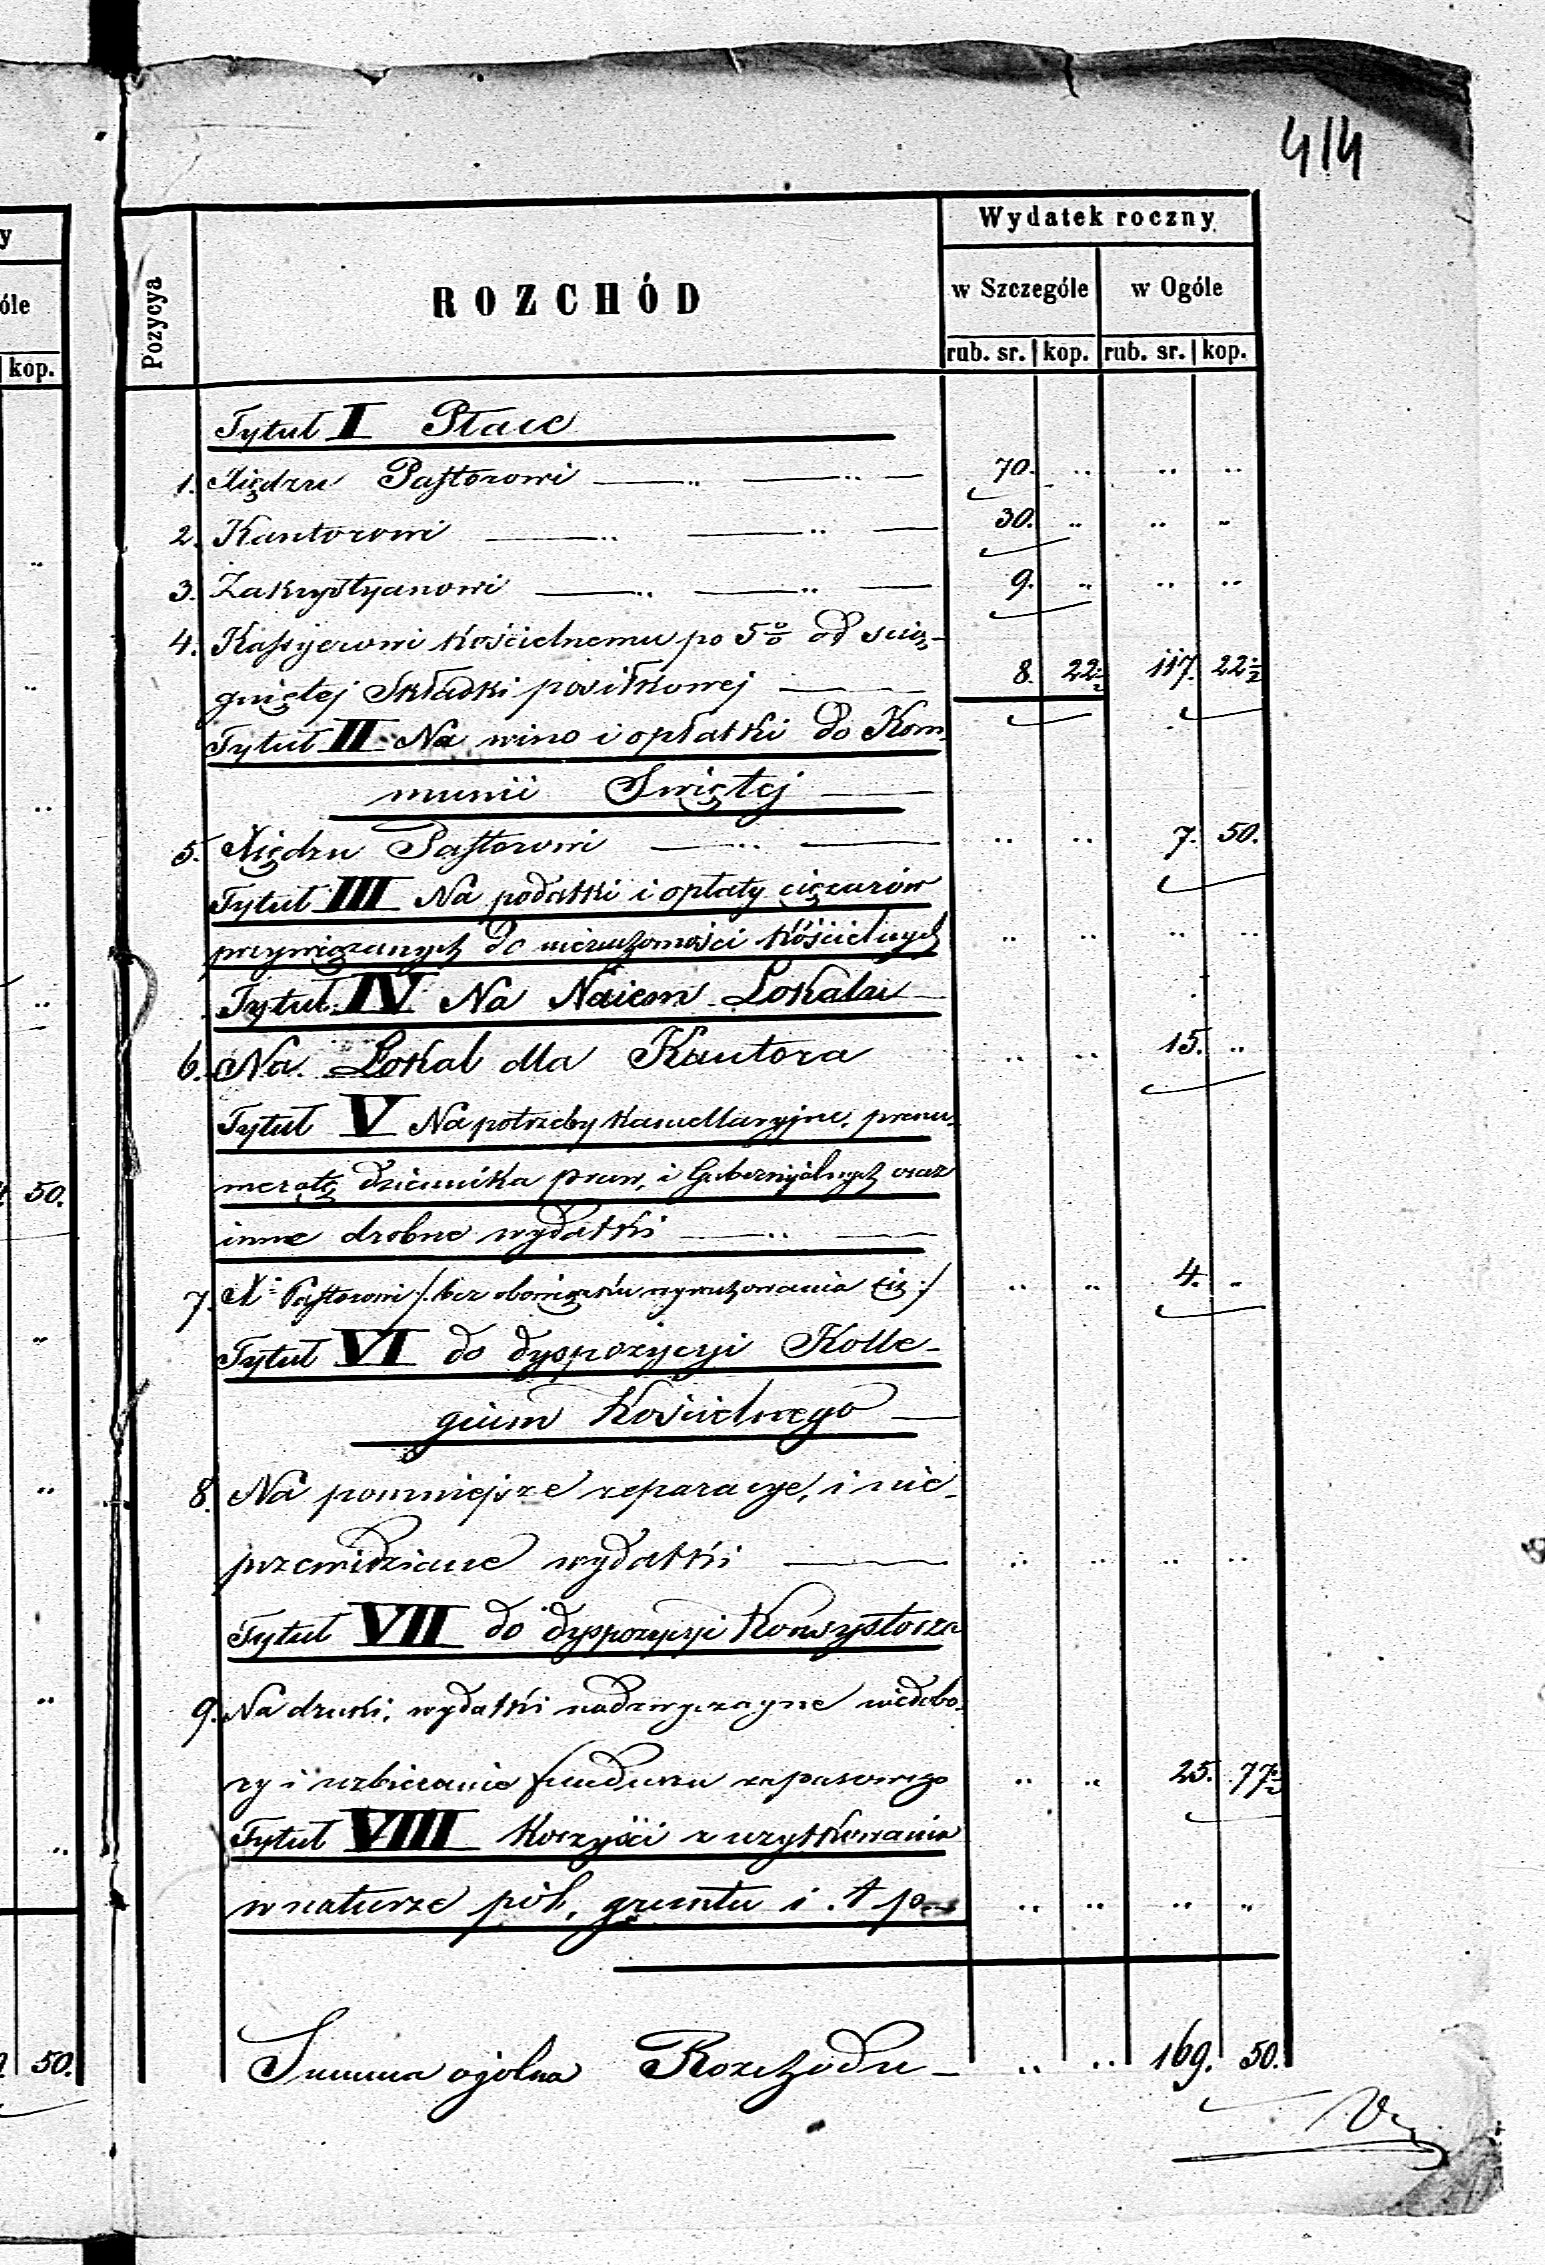 414
y
óle
kop.
50.
50.
Wydatek roczny
Pozycya
ROZCHÓD
w Szczególe w Ogóle
rub. sr. kop. rub. sr. kop.
Tytuł I Płace
1. Xiędzu Pastorowi — „ — „ — 70. „ „ „
2. Kantorowi — „ — „ — 30. „ „ „
3. Zakrystyanowi — „ — „ — 9. „ „ „
4. Kassyerowi kościelnemu po 5% od scią-
gniętej Składki posiłkowej — 8. 22½ 117. 22½
Tytuł II Na wino i opłatki do Kom-
munii Swiętej —
5. Xiędzu Pastorowi — „ — „ „ 7. 50.
Tytuł III Na podatki i opłaty ciężarów
przywiązanych do nieruchomości kościelnych „ „ „ „
Tytuł IV Na Naiem Lokalu —
6. Na Lokal dla Kantora „ „ 15. „
Tytuł V Na potrzeby kancellaryjne, prenu-
meratę dziennika praw, i Gubernijalnych oraz
inne drobne wydatki — „ —
7. X. Pastorowi /: bez obowiązku wyrachowania się :/ „ „ 4. „
Tytuł VI do dyspozycyi Kolle-
gium Kościelnego —
8. Na pomniejsze reparacye, i nie-
przewidziane wydatki — „ „ „ „
Tytuł VII do dyspozycyi Konsystorza
9. Na druki, wydatki nadzwyczayne niedobo-
ry i uzbieranie funduszu zapasowego „ „ 25. 77½
Tytuł VIII Korzyści z użytkowania
w naturze pól, gruntu i .t p. „ „ „ „
Summa ogólna Rozchodu — „ „ 169. 50.